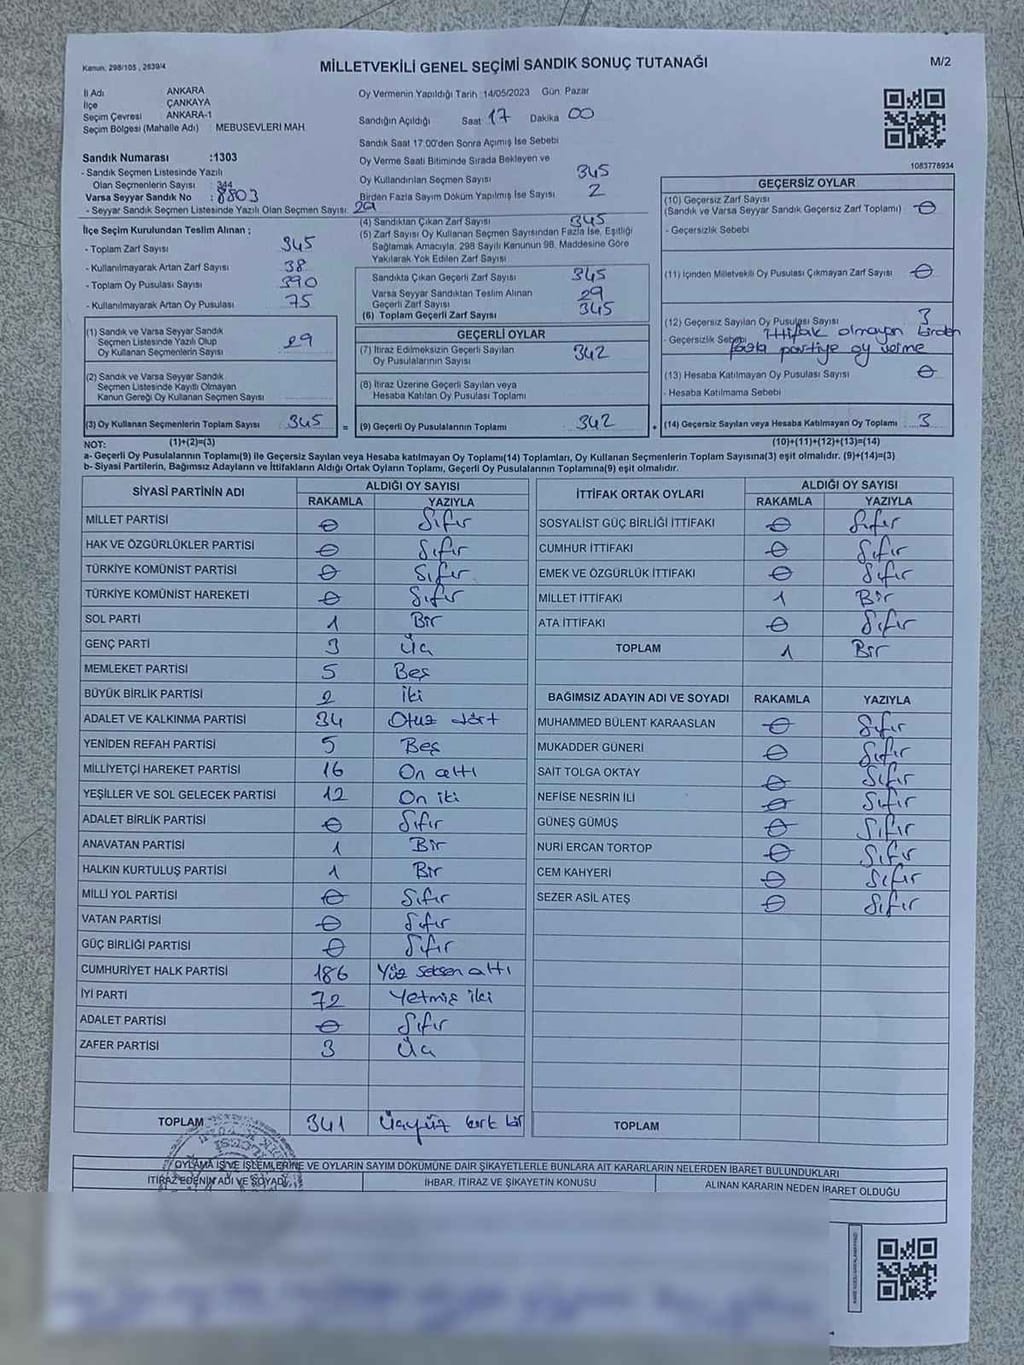 Kanun, 298/105 , 2839/4
MİLLETVEKİLİ GENEL SEÇİMİ SANDIK SONUÇ TUTANAĞI
M/2
İl Adı ANKARA
İlçe ÇANKAYA
Seçim Çevresi ANKARA-1
Seçim Bölgesi (Mahalle Adı) MEBUSEVLERİ MAH
Sandık Numarası :1303
- Sandık Seçmen Listesinde Yazılı
Olan Seçmenlerin Sayısı : 344
Varsa Seyyar Sandık No : 8803
- Seyyar Sandık Seçmen Listesinde Yazılı Olan Seçmen Sayısı: 29
Oy Vermenin Yapıldığı Tarih :14/05/2023 Gün: Pazar
Sandığın Açıldığı Saat 17 Dakika 00
Sandık Saat 17.00'den Sonra Açımış İse Sebebi
Oy Verme Saati Bitiminde Sırada Bekleyen ve
Oy Kullandırılan Seçmen Sayısı 345
Birden Fazla Sayım Döküm Yapılmış İse Sayısı 2
1083778934
İlçe Seçim Kurulundan Teslim Alınan ;
- Toplam Zarf Sayısı 345
- Kullanılmayarak Artan Zarf Sayısı 38
- Toplam Oy Pusulası Sayısı 390
- Kullanılmayarak Artan Oy Pusulası 75
(1) Sandık ve Varsa Seyyar Sandık
Seçmen Listesinde Yazılı Olup
Oy Kullanan Seçmenlerin Sayısı 29
(2) Sandık ve Varsa Seyyar Sandık
Seçmen Listesinde Kayıtlı Olmayan
Kanun Gereği Oy Kullanan Seçmen Sayısı
(3) Oy Kullanan Seçmenlerin Toplam Sayısı 345 =
(4) Sandıktan Çıkan Zarf Sayısı 345
(5) Zarf Sayısı Oy Kullanan Seçmen Sayısından Fazla İse, Eşitliği
Sağlamak Amacıyla, 298 Sayılı Kanunun 98. Maddesine Göre
Yakılarak Yok Edilen Zarf Sayısı
Sandıkta Çıkan Geçerli Zarf Sayısı 345
Varsa Seyyar Sandıktan Teslim Alınan
Geçerli Zarf Sayısı 29
(6) Toplam Geçerli Zarf Sayısı 345
GEÇERLİ OYLAR
(7) İtiraz Edilmeksizin Geçerli Sayılan
Oy Pusulalarının Sayısı 342
(8) İtiraz Üzerine Geçerli Sayılan veya
Hesaba Katılan Oy Pusulası Toplamı
(9) Geçerli Oy Pusulalarının Toplamı 342 +
GEÇERSİZ OYLAR
(10) Geçersiz Zarf Sayısı
(Sandık ve Varsa Seyyar Sandık Geçersiz Zarf Toplamı) 0
- Geçersizlik Sebebi
(11) İçinden Milletvekili Oy Pusulası Çıkmayan Zarf Sayısı 0
(12) Geçersiz Sayılan Oy Pusulası Sayısı 3
- Geçersizlik Sebebi İttifak olmayan birden
fazla partiye oy verme
(13) Hesaba Katılmayan Oy Pusulası Sayısı 0
- Hesaba Katılmama Sebebi
(14) Geçersiz Sayılan veya Hesaba Katılmayan Oy Toplamı 3
NOT: (1)+(2)=(3) (10)+(11)+(12)+(13)=(14)
a- Geçerli Oy Pusulalarının Toplamı(9) ile Geçersiz Sayılan veya Hesaba katılmayan Oy Toplamı(14) Toplamları, Oy Kullanan Seçmenlerin Toplam Sayısına(3) eşit olmalıdır. (9)+(14)=(3)
b- Siyasi Partilerin, Bağımsız Adayların ve İttifakların Aldığı Ortak Oyların Toplamı, Geçerli Oy Pusulalarının Toplamına(9) eşit olmalıdır.
SİYASİ PARTİNİN ADI ALDIĞI OY SAYISI
RAKAMLA YAZIYLA
MİLLET PARTİSİ 0 Sıfır
HAK VE ÖZGÜRLÜKLER PARTİSİ 0 Sıfır
TÜRKİYE KOMÜNİST PARTİSİ 0 Sıfır
TÜRKİYE KOMÜNİST HAREKETİ 0 Sıfır
SOL PARTİ 1 Bir
GENÇ PARTİ 3 Üç
MEMLEKET PARTİSİ 5 Beş
BÜYÜK BİRLİK PARTİSİ 2 İki
ADALET VE KALKINMA PARTİSİ 34 Otuz dört
YENİDEN REFAH PARTİSİ 5 Beş
MİLLİYETÇİ HAREKET PARTİSİ 16 On altı
YEŞİLLER VE SOL GELECEK PARTİSİ 12 On iki
ADALET BİRLİK PARTİSİ 0 Sıfır
ANAVATAN PARTİSİ 1 Bir
HALKIN KURTULUŞ PARTİSİ 1 Bir
MİLLİ YOL PARTİSİ 0 Sıfır
VATAN PARTİSİ 0 Sıfır
GÜÇ BİRLİĞİ PARTİSİ 0 Sıfır
CUMHURİYET HALK PARTİSİ 186 Yüz seksen altı
İYİ PARTİ 72 Yetmiş iki
ADALET PARTİSİ 0 Sıfır
ZAFER PARTİSİ 3 Üç
TOPLAM 341 Üçyüz kırk bir
İTTİFAK ORTAK OYLARI ALDIĞI OY SAYISI
RAKAMLA YAZIYLA
SOSYALİST GÜÇ BİRLİĞİ İTTİFAKI 0 Sıfır
CUMHUR İTTİFAKI 0 Sıfır
EMEK VE ÖZGÜRLÜK İTTİFAKI 0 Sıfır
MİLLET İTTİFAKI 1 Bir
ATA İTTİFAKI 0 Sıfır
TOPLAM 1 Bir
BAĞIMSIZ ADAYIN ADI VE SOYADI RAKAMLA YAZIYLA
MUHAMMED BÜLENT KARAASLAN 0 Sıfır
MUKADDER GÜNERİ 0 Sıfır
SAİT TOLGA OKTAY 0 Sıfır
NEFİSE NESRİN İLİ 0 Sıfır
GÜNEŞ GÜMÜŞ 0 Sıfır
NURİ ERCAN TORTOP 0 Sıfır
CEM KAHYERİ 0 Sıfır
SEZER ASİL ATEŞ 0 Sıfır
TOPLAM
OYLAMA İŞ VE İŞLEMLERİNE VE OYLARIN SAYIM DÖKÜMÜNE DAİR ŞİKAYETLERLE BUNLARA AİT KARARLARIN NELERDEN İBARET BULUNDUKLARI
İTİRAZ EDENİN ADI VE SOYADI İHBAR, İTİRAZ VE ŞİKAYETİN KONUSU ALINAN KARARIN NEDEN İBARET OLDUĞU